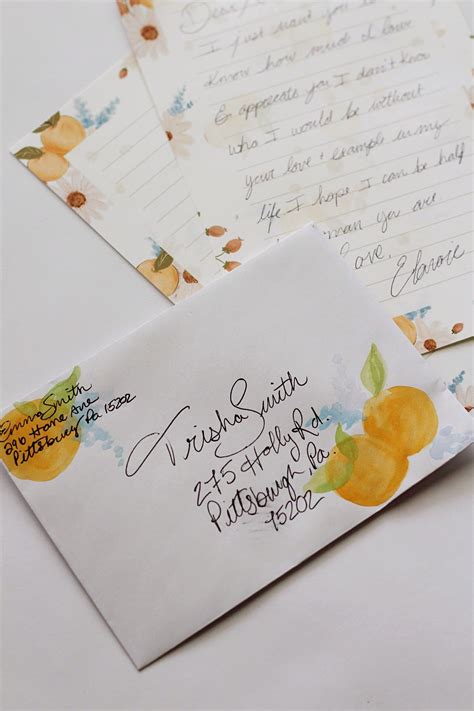 Dear
I just want you to
Know how much I love
& appreciate you I don't know
who I would be without
your love + example in my
life I hope I can be half
man you are
Love,
Emma Smith
296 Hane Ave
Pittsburg Pa 15202
Trisha Smith
275 Holly Rd.
Pittsburgh, Pa.
15202